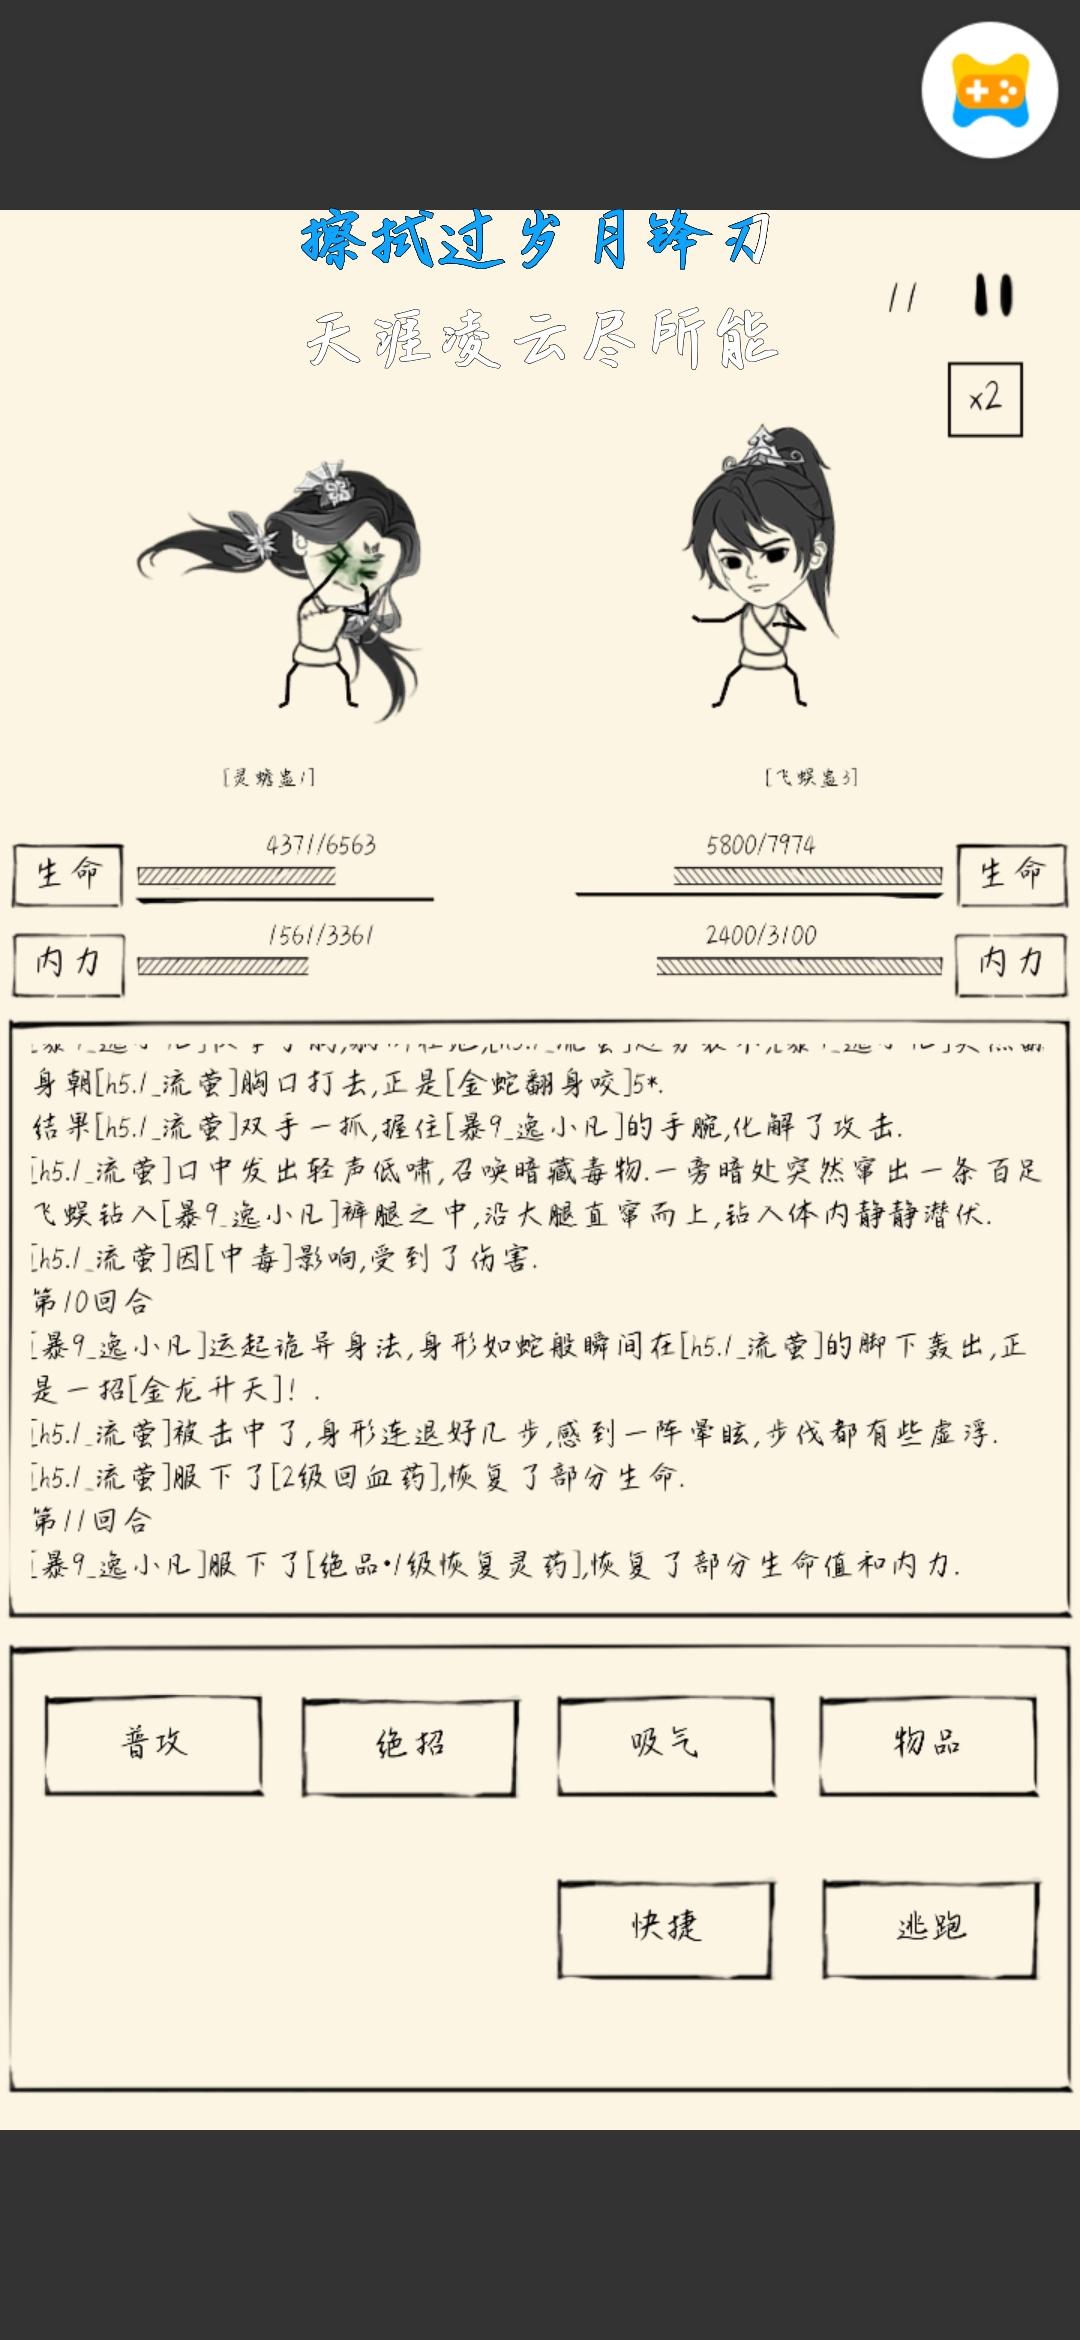 擦拭过岁月锋刃
天涯凌云尽所能
11
x2
[灵蟾蛊1]
[飞蜈蛊3]
4371/6563
5800/7974
生命
生命
1561/3361
2400/3100
内力
内力
身朝[h5.1_流萤]胸口打去,正是[金蛇翻身咬]5*.
结果[h5.1_流萤]双手一抓,握住[暴9_逸小凡]的手腕,化解了攻击.
[h5.1_流萤]口中发出轻声低啸,召唤暗藏毒物.一旁暗处突然窜出一条百足
飞蜈钻入[暴9_逸小凡]裤腿之中,沿大腿直窜而上,钻入体内静静潜伏.
[h5.1_流萤]因[中毒]影响,受到了伤害.
第10回合
[暴9_逸小凡]运起诡异身法,身形如蛇般瞬间在[h5.1_流萤]的脚下轰出,正
是一招[金龙升天]! .
[h5.1_流萤]被击中了,身形连退好几步,感到一阵晕眩,步伐都有些虚浮.
[h5.1_流萤]服下了[2级回血药],恢复了部分生命.
第11回合
[暴9_逸小凡]服下了[绝品•1级恢复灵药],恢复了部分生命值和内力.
普攻
绝招
吸气
物品
快捷
逃跑